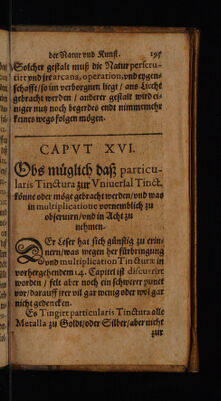 der Natur vnd Kunst. 195
Solcher gestalt muß die Natur perscru-
tirt vnd jre arcana, operation, vnd eygen-
schafft / so im verborgnen ligt / ans Liecht
gebracht werden / anderer gestalt wird ei-
niger nutz noch begerdes endt nimmemehr
keines wegs folgen mögen.
CAPVT XVI.
Obs müglich daß particu-
laris Tinctura zur Vniuersal Tinct.
könne oder möge gebracht werden / vnd was
in multiplicatione vornemblich zu
obseruirn / vnd in Acht zu
nehmen.
Der Leser hat sich günstig zu erin-
nern / was wegen der fürbringung
vnd multiplication Tincturæ in
vorhergehendem 14. Capitel ist discurrirt
worden / felt aber noch ein schwerer punct
vor / darauff jrer vil gar wenig oder wol gar
nicht gedencken.
Es Tingirt particularis Tinctura alle
Metalla zu Goldt / oder Silber / aber nicht
zur